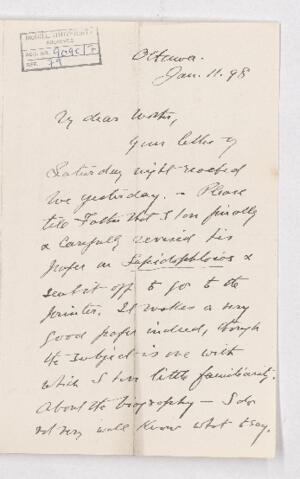 McGILL UNIVERSITY
ARCHIVES
ACC. NO.
REF.
Ottawa.
Jan. 11. 98
My dear
Your letter of
Saturday night reached
me yesterday. – Please
tell Father that I have finally
& carefully revised his
paper on &
sent it off to go to the
printer. It makes a very
good paper indeed, though
the subject is one with
which I have little familiarity.
About the biography – I do
not very well know what to say.